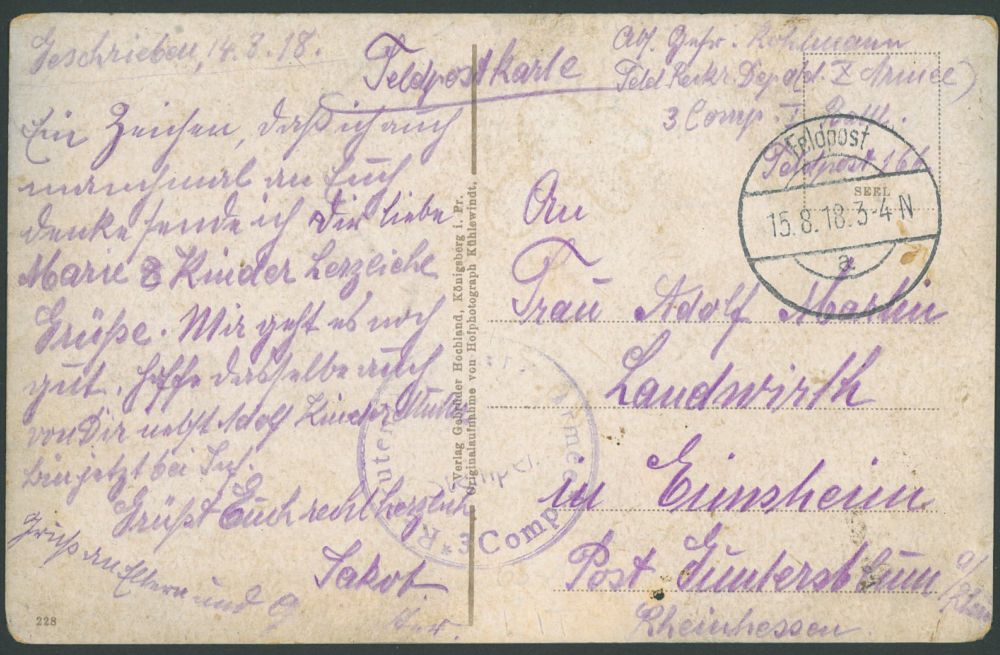 Geschrieben, 14.8.18.
Feldpostkarte
Ein Zeichen, daß ich auch
manchmal an Euch
denke sende ich Dir liebe
Marie & Kinder herzliche
Grüße. Mir geht es noch
gut, hoffe dasselbe auch
von Dir nebst Adolf Kinder Mutter
bin jetzt bei Inf.
Grüßt Euch recht herzlich
Jakob.
Gruß an Eltern und
228
Verlag Gebrüder Hochland, Königsberg i. Pr.
Originalaufnahme von Hofphotograph Kühlewindt,
Abs. Gefr. Kohlmann
Feld Rekr. Depot d. Armee
3 Comp. I Battl.
Feldpost 166
Feldpost
15.8.18.3-4 N
a
SEEL
An
Frau Adolf Martin
Landwirth
in Eimsheim
Post Guntersblum
a/Rhein
Rheinhessen.
Armee
* 3 Comp